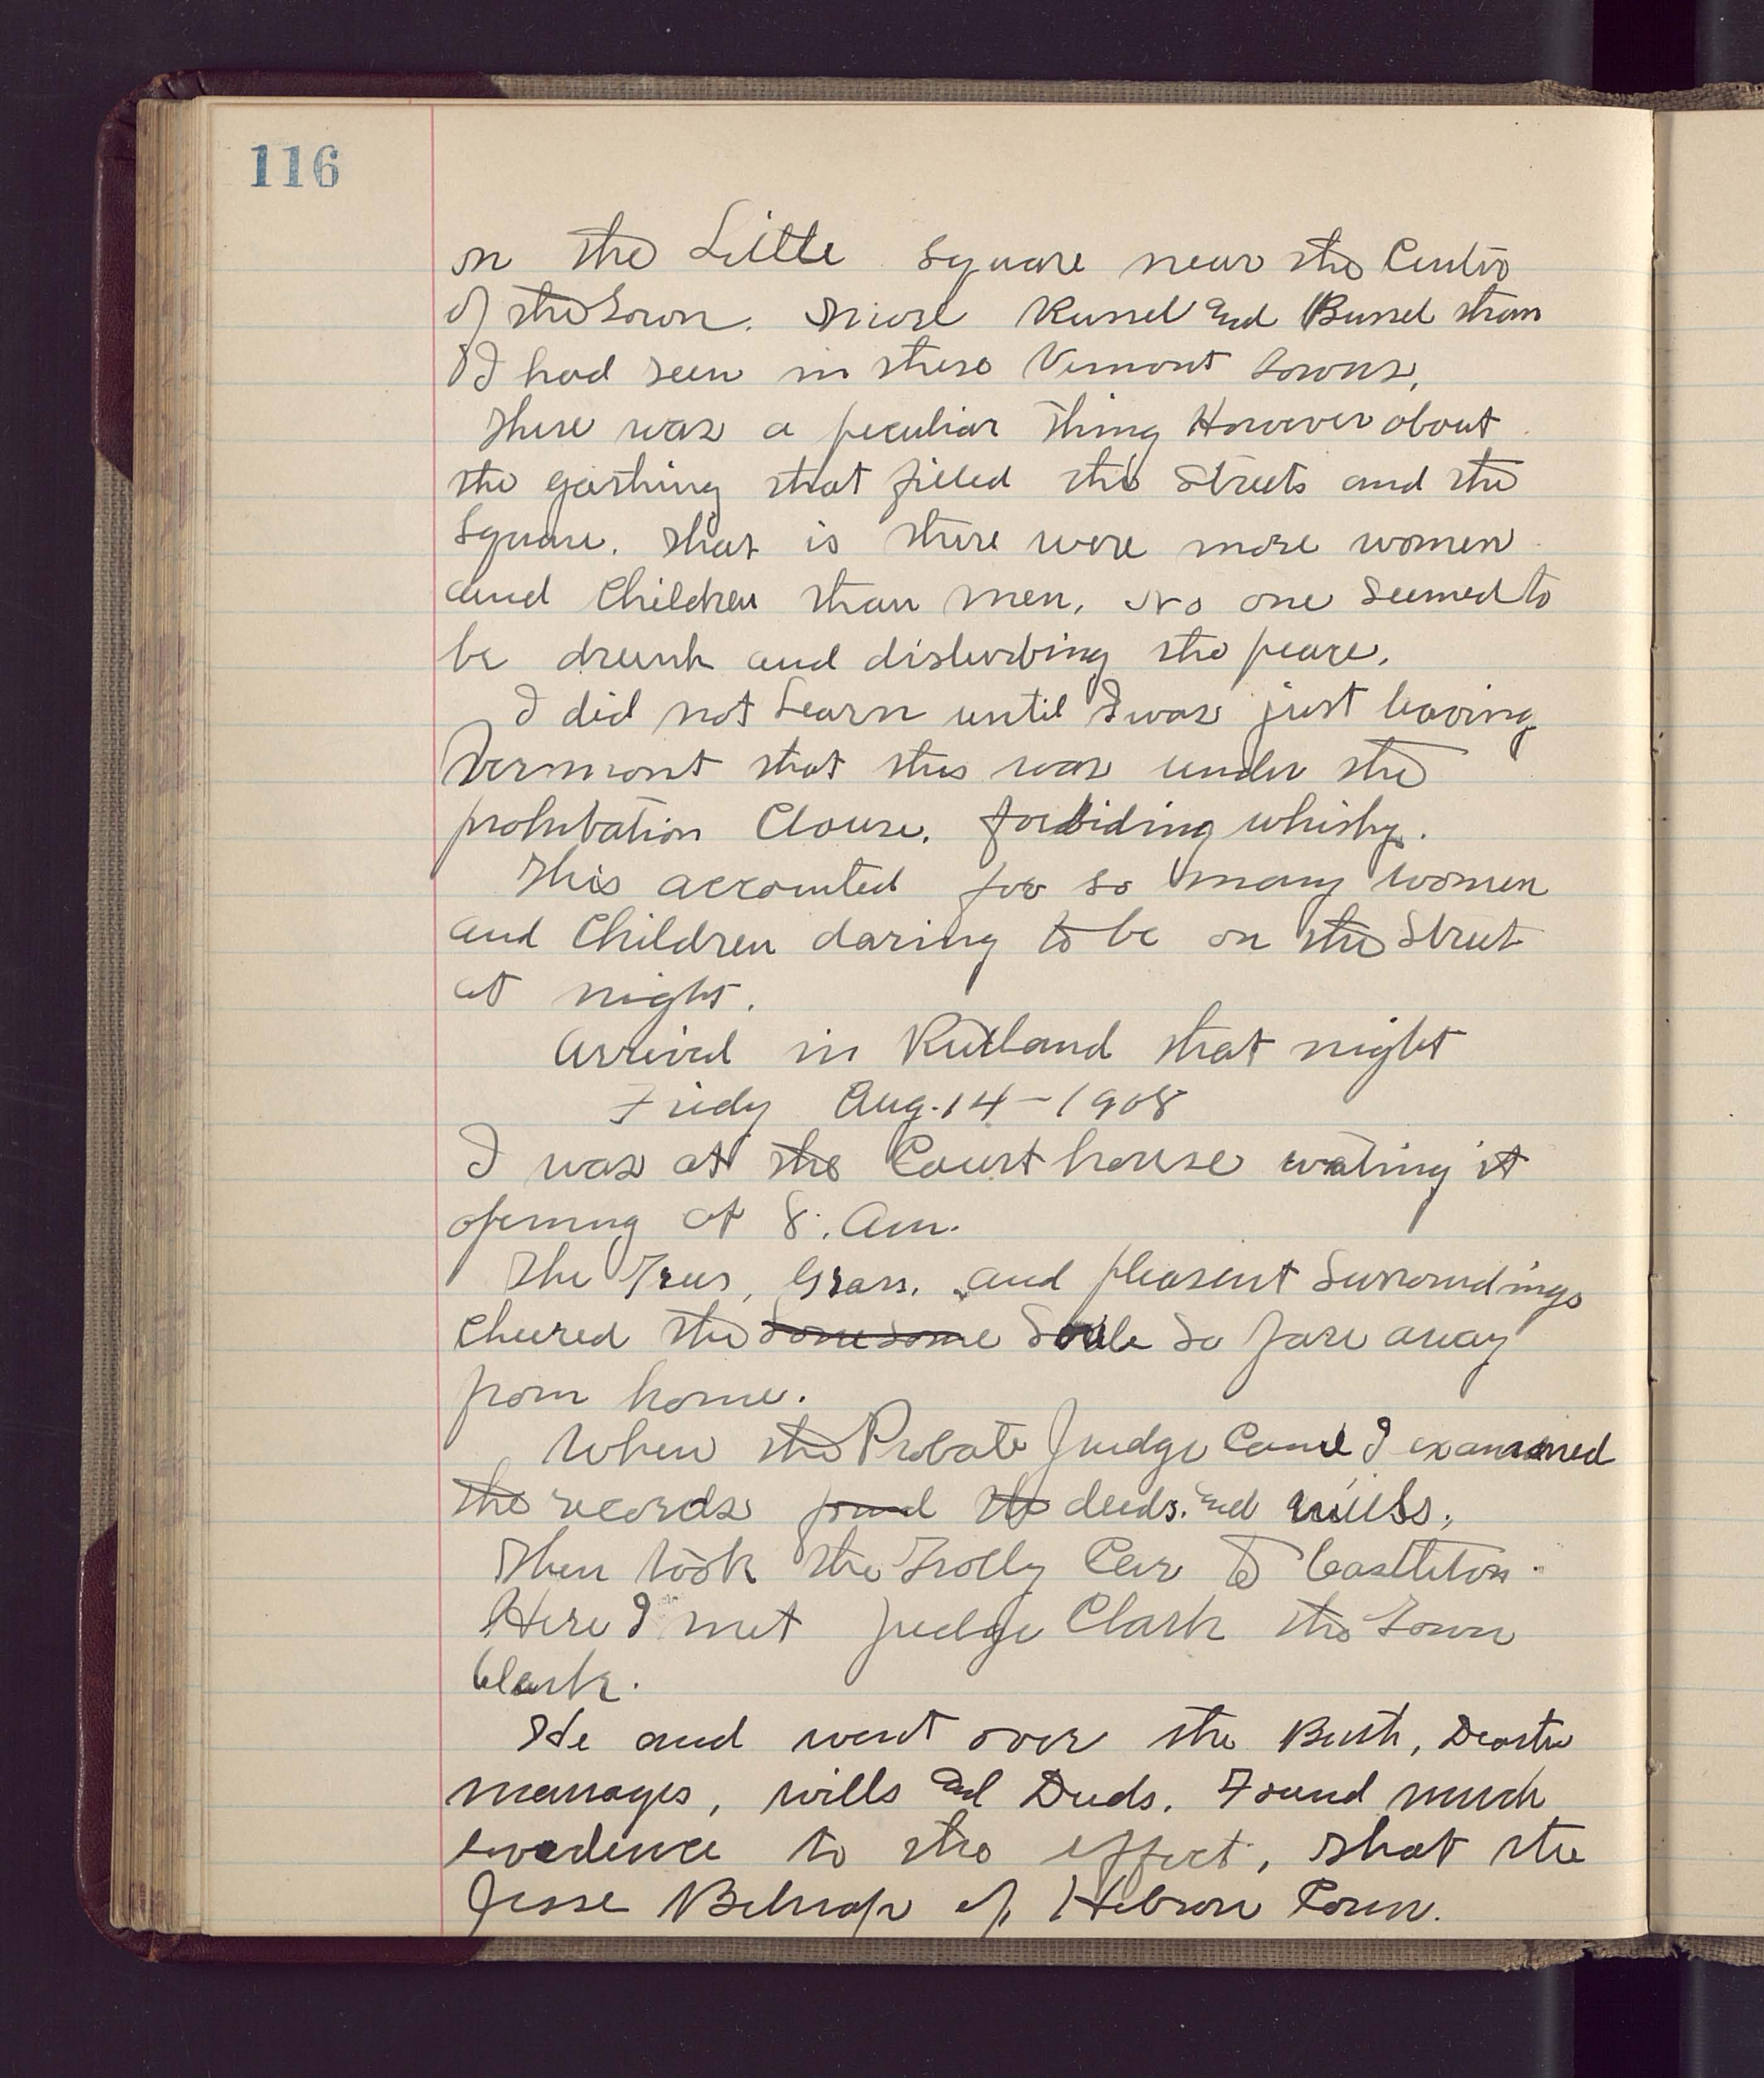 116
on the Little Square near the Center
of the Town. More Russel and Bussel than
I had seen in these Vermont Towns.
There was a peculiar Thing However about
the gathing that filled the Streets and the
Square. That is there were more women
and Children than men. No one Seemed to
be drunk and disturbing the peace.
I did not Learn until I was just leaving
Vermont that this was under the
prohibation Clouse. forbiding whisky.
This accounted for so many women
and Children daring to be on the Street
at night.
Arrived in Rutland that night
Fridy Aug. 14 - 1908
I was at the Court house wating it
opening at 8. Am.
The Trees, Grass, and pleasent Surroundings
Cheered the Lonesome Soule So fare away
from home.
When the Probate Judge Came I examened
the records found the deeds. and wills.
Then took the Trolly Car To Castleton.
Here I met Judge Clark the Town
Clark.
He and went over the Birth, Deaths
marrages, wills and Deeds. Found much
evedence to the effect, that the
Jesse Belnap of Hebron Conn.